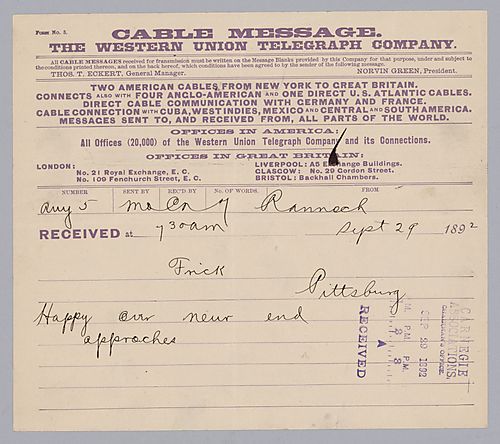 FORM No. 3.
CABLE MESSAGE.
THE WESTERN UNION TELEGRAPH COMPANY.
All CABLE MESSAGES received for transmission must be written on the Message Blanks provided by this Company for that purpose, under and subject to
the conditions printed thereon, and on the back hereof, which conditions have been agreed to by the sender of the following message.
THOS. T. ECKERT, General Manager. NORVIN GREEN, President.
TWO AMERICAN CABLES FROM NEW YORK TO GREAT BRITAIN.
CONNECTS ALSO WITH FOUR ANGLO-AMERICAN AND ONE DIRECT U.S. ATLANTIC CABLES.
DIRECT CABLE COMMUNICATION WITH GERMANY AND FRANCE.
CABLE CONNECTION WITH CUBA, WEST INDIES, MEXICO AND CENTRAL AND SOUTH AMERICA.
MESSAGES SENT TO, AND RECEIVED FROM, ALL PARTS OF THE WORLD.
OFFICES IN AMERICA:
All Offices (20,000) of the Western Union Telegraph Company and its Connections.
OFFICES IN GREAT BRITAIN:
LONDON: LIVERPOOL: A5 Exchange Buildings.
No. 21 Royal Exchange, E. C. GLASGOW: No. 29 Gordon Street.
No. 109 Fenchurch Street, E. C. BRISTOL: Backhall Chambers.
NUMBER SENT BY REC'D BY No. OF WORDS. FROM
5 7 Rannoch
RECEIVED at 730am Sept 29 1892
Frick
Pittsburg
Happy over near end
approaches
CARNEGIE
ASSOCIATIONS
CHAIRMAN'S OFFICE
SEP 29 1892
RECEIVED